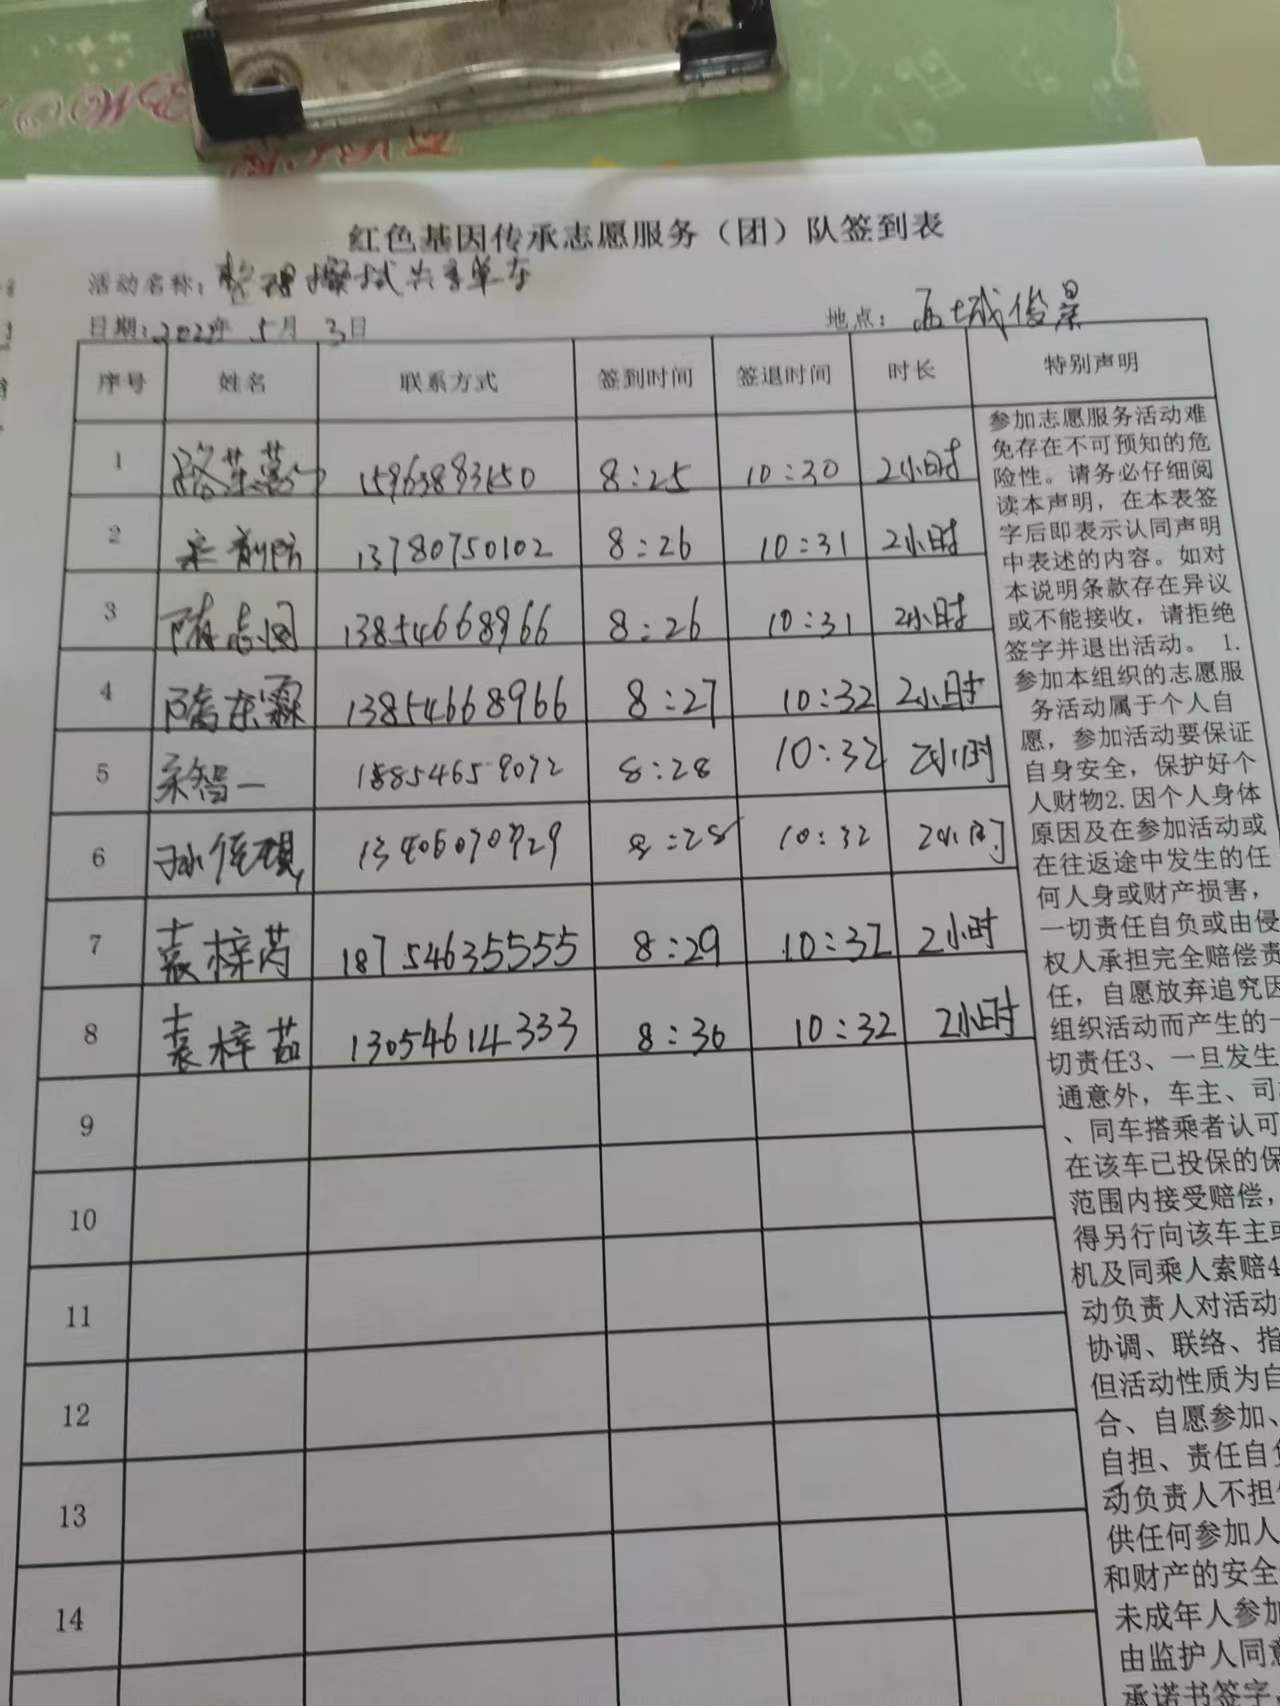 红色基因传承志愿服务（团）队签到表
活动名称：整理擦拭共享单车
日期：2022年 5月 3日 地点：西城俊景
序号 姓名 联系方式 签到时间 签退时间 时长 特别声明
1 8:25 10:30 2小时
2 13780750102 8:26 10:31 2小时
3 13854668966 8:26 10:31 2小时
4 13854668966 8:27 10:32 2小时
5 18854659072 8:28 10:32 2小时
6 8:28 10:32 2小时
7 袁梓芮 18754635555 8:29 10:32 2小时
8 袁梓茹 13054614333 8:30 10:32 2小时
9
10
11
12
13
14
参加志愿服务活动难
免存在不可预知的危
险性。请务必仔细阅
读本声明，在本表签
字后即表示认同声明
中表述的内容。如对
本说明条款存在异议
或不能接收，请拒绝
签字并退出活动。 1.
参加本组织的志愿服
务活动属于个人自
愿，参加活动要保证
自身安全，保护好个
人财物2.因个人身体
原因及在参加活动或
在往返途中发生的任
何人身或财产损害，
一切责任自负或由侵
权人承担完全赔偿责
任，自愿放弃追究因
组织活动而产生的一
切责任3、一旦发生
通意外，车主、司
、同车搭乘者认可
在该车已投保的保
范围内接受赔偿，
得另行向该车主或
机及同乘人索赔4
动负责人对活动
协调、联络、指
但活动性质为自
合、自愿参加、
自担、责任自负
动负责人不担
供任何参加人
和财产的安全
未成年人参加
由监护人同意
承诺书签字